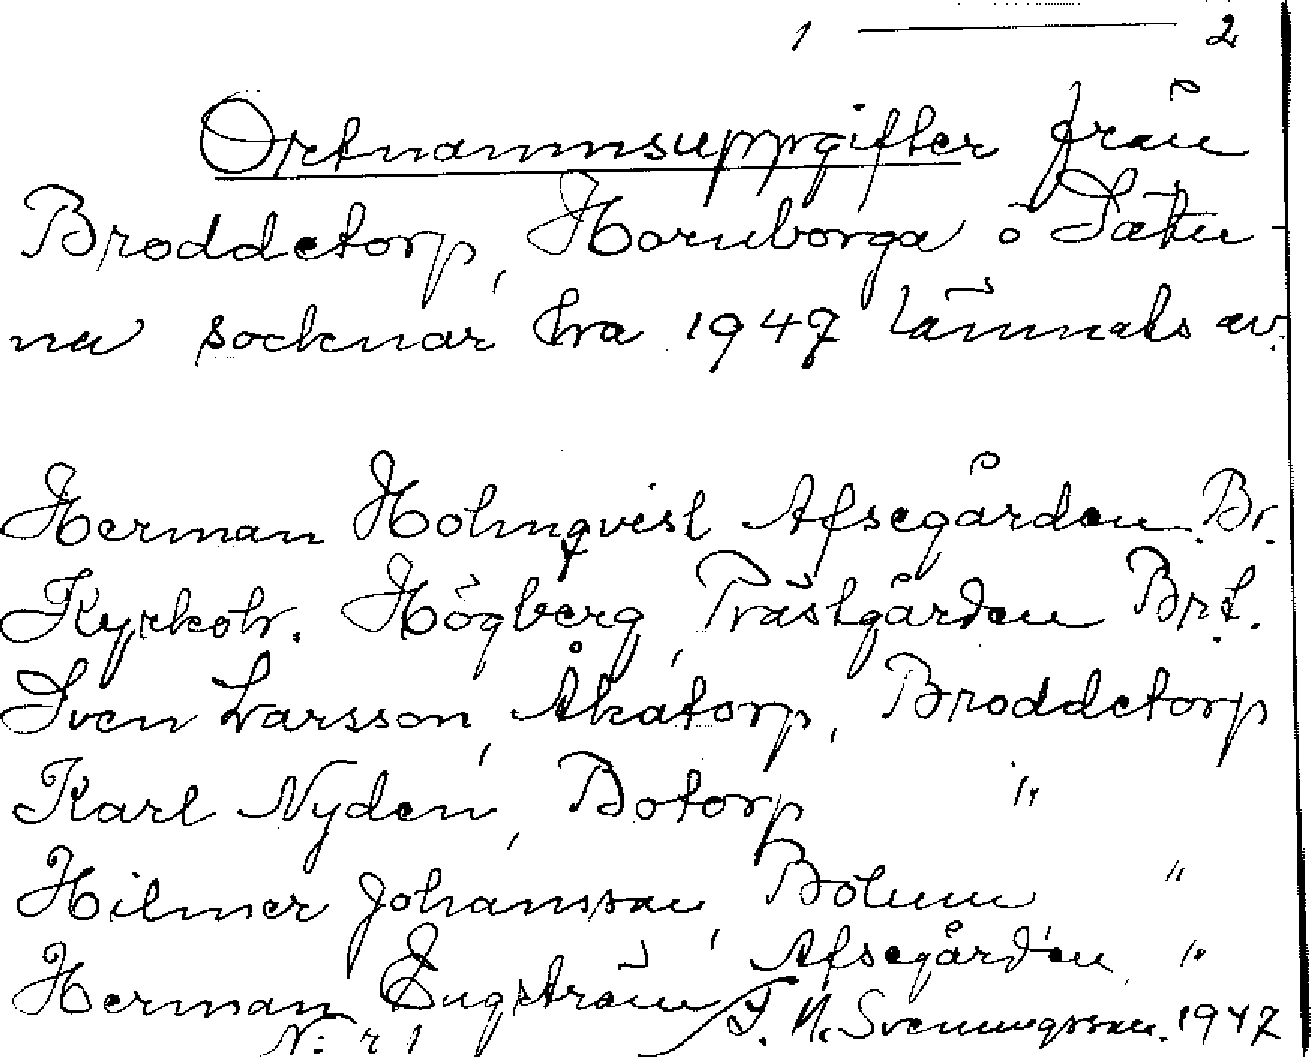 1 — 2
Ortnamnsuppgifter från
Broddetorp, Hornborga o Sätu-
na socknar hva 1947 lämnats av.
Herman Holmqvist Afsegården Br.
Kyrkohr. Högberg, Prästgården Br.t.
Sven Larsson, Åkatorp, Broddetorp
Karl Nyden, Botorp "
Hilmer Johansson, Bolum "
Herman Engström, Afsegården, "
N:r 1 F. N. Svenungsson. 1947